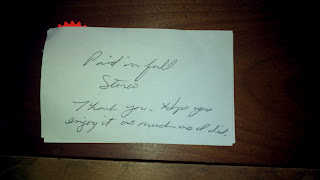 Paid in full
Stereo
Thank you - Hope you
enjoy it as much as I did.